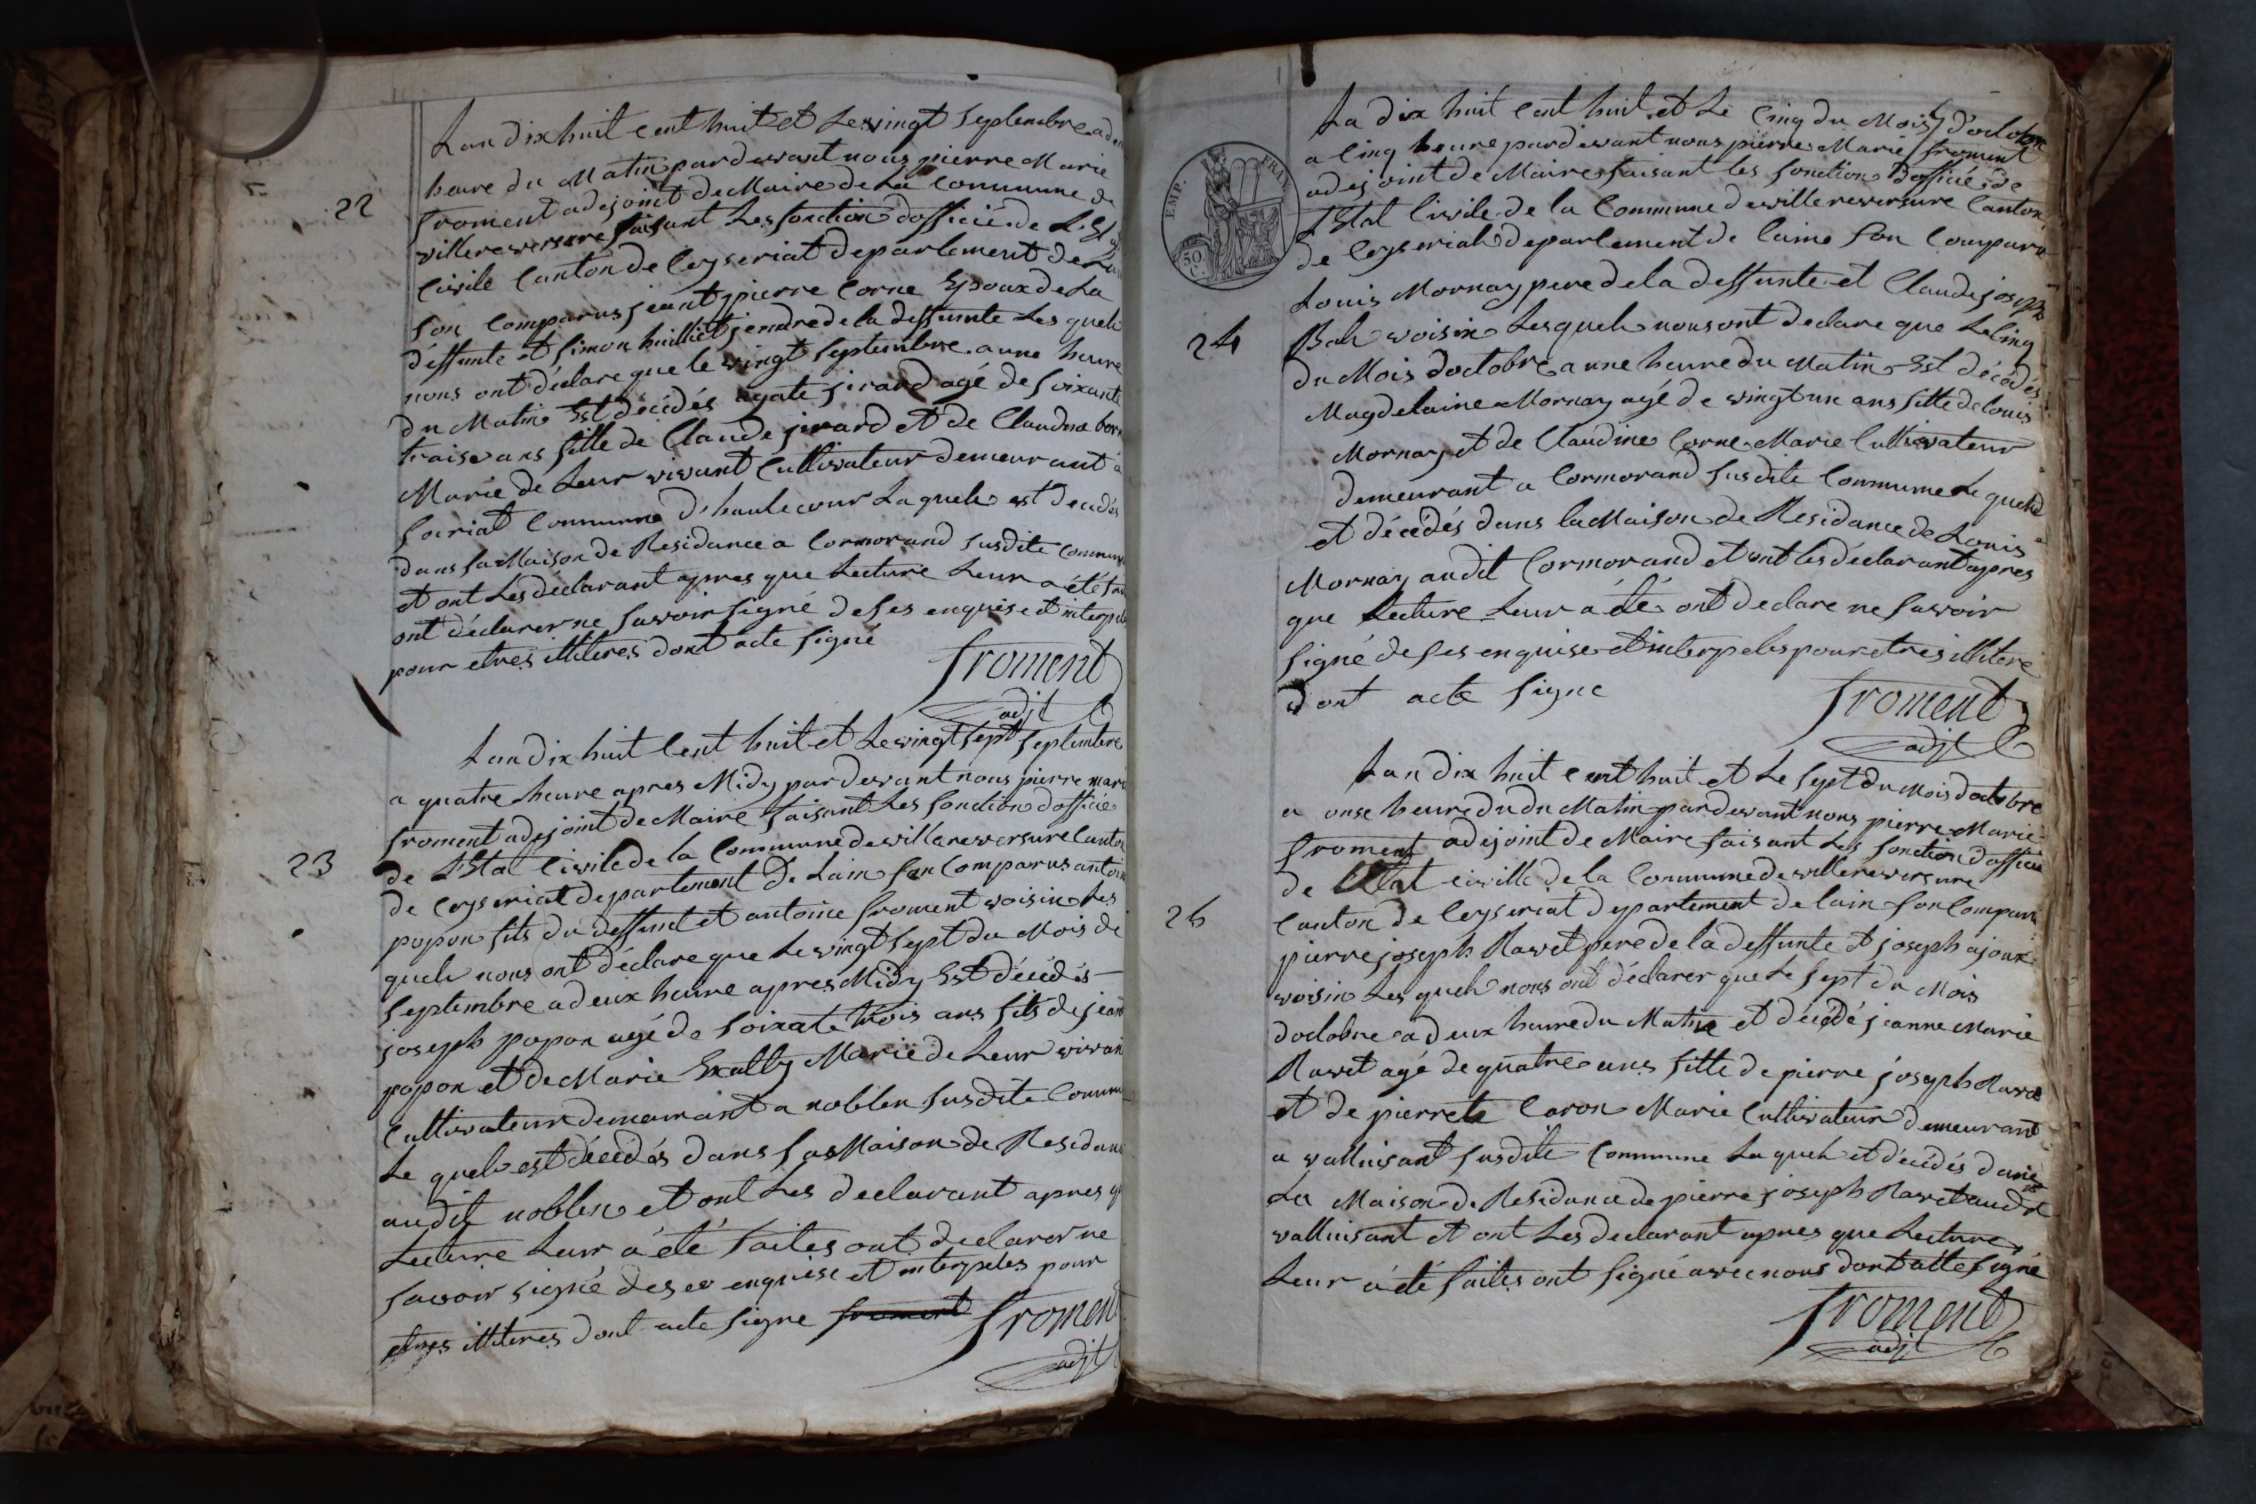 22
Lan dix huit cent huit et Le vingt Septembre a
heure du Matin pardevant nous pierre Marie
froment adejoint de Maire de La Commune de
villereversure faisant Les fonction dofficié de L'Et
Civile Canton de Ceyseriat departement de
son Comparus jeant pierre Corne Epoux de La
déffunte et Simon huilliet jendre de la deffunte Les quels
nous ont déclare que le vingt Septembre a une heure
du Matin Est décédés agate jirard agé de Soixante
traise ans fille de Claude jirard et de Claudine
Marie de Leur vivant Cultivateur demeurant a
Soiriat Commune d'hautecour La quele est decedés
dans sa Maison de Residance a Cormorand susdite Commun
et ont Les declarant apres que Lecture Leur a été
ont déclarer ne Savoir Signé de ses enquise et interpel
pour etres illiteres dont acte Signé
froment
adjt
23
Lan dix huit Cent huit et Le vingt Sept Septembre
a quatre heure apres Midy pardevant nous pierre mari
froment adejoint de Maire faisant Les fonction dofficié
de L'Etat Civile de la Commune de villereversure Canton
de Ceyseriat departement de Lain son Comparus antoin
popon fils du deffunt et antoine froment voisin Les
quels nous ont déclare que Le vingt Sept du Mois de
Septembre a deux heure apres Midy Est décédés
joseph popon agé de soixate trois ans fils de jean
popon et de Marie Marie de Leur vivan
Cultivateur demeurant a noblen susdite Commu
Le quel est décédés dans sa Maison de Residan
audit noblen et ont Les declarant apres q
Lecture Leur a été faites ont declarer ne
savoir signé de ses enquise et interpeles pour
etres illiteres dont acte signe froment froment
adjt
EMP. FRAN.
50 C.
24
La dix huit Cent huit et Le Cinq du Mois d'octobre
a Cinq heure pardevant nous pierre Marie froment
adejoint de Maire faisant les fonction dofficié de
L'Etat Civile de la Commune de villereversure Canton
de Ceyseriat departement de Laine son Comparu
Louis Mornay pere de la deffunte et Claude joseph
voisin Lesquels nous ont declare que Le Cinq
du Mois doctobre a une heure du Matin Est décédés
Magdelaine Mornay agé de vingt un ans fille de Louis
Mornay et de Claudine Corne Marie Cultivateur
demeurant a Cormorand susdite Commune Le quele
et décédés dans la Maison de Residance de Louis
Mornay audit Cormorand et ont les déclarant apres
que Lecture Leur a été ont declare ne savoir
signé de ses enquise et interpeles pour etres illitere
dont acte signe
froment
adjt
25
Lan dix huit cent huit et Le Sept du Mois doctobre
a onse heure du du Matin pardevant nous pierre Marie
froment adejoint de Maire faisant Les fonction dofficié
de Etat civille de la Commune de villereversure
Canton de Ceyseriat departement de lain son Comparu
pierre joseph Ravet pere de la deffunte et joseph ajoux
voisin Les quels nous ont déclarer que Le Sept du Mois
doctobre a deux heure du Matin et décédé jeanne Marie
Ravet agé de quatre ans fille de pierre joseph Ravet
et de pierrete Caron Marie Cultivateur demeurant
a valluisant susdite Commune La quele et décédés dans
La Maison de Residance de pierre joseph Ravet audit
valluisant et ont Les declarant apres que Lecture
Leur a été faites ont signé avec nous dont acte signé
froment
adjt